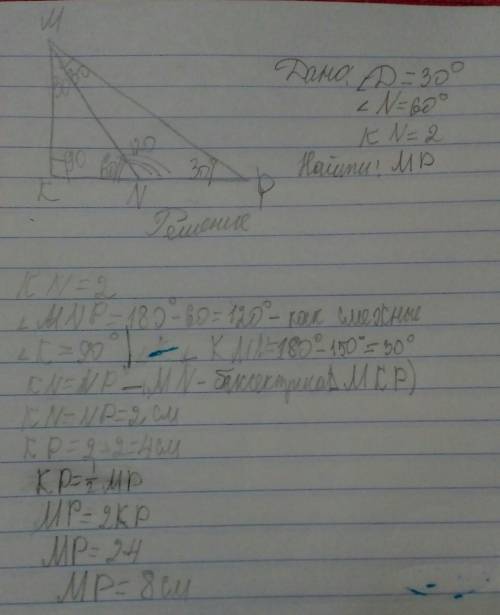 M
30
30
Дано: ∠D=30°
∠N=60°
KN=2
Найти: MP
90
60
120
30
K
N
P
Решение
KN=2
∠MNP=180°-60=120° - как смежные
∠K=90° ∠KMN=180°-150°=30°
KN=NP - MN - биссектриса ΔMKP)
KN=NP=2см
KP=2+2=4см
KP=½MP
MP=2KP
MP=2·4
MP=8см